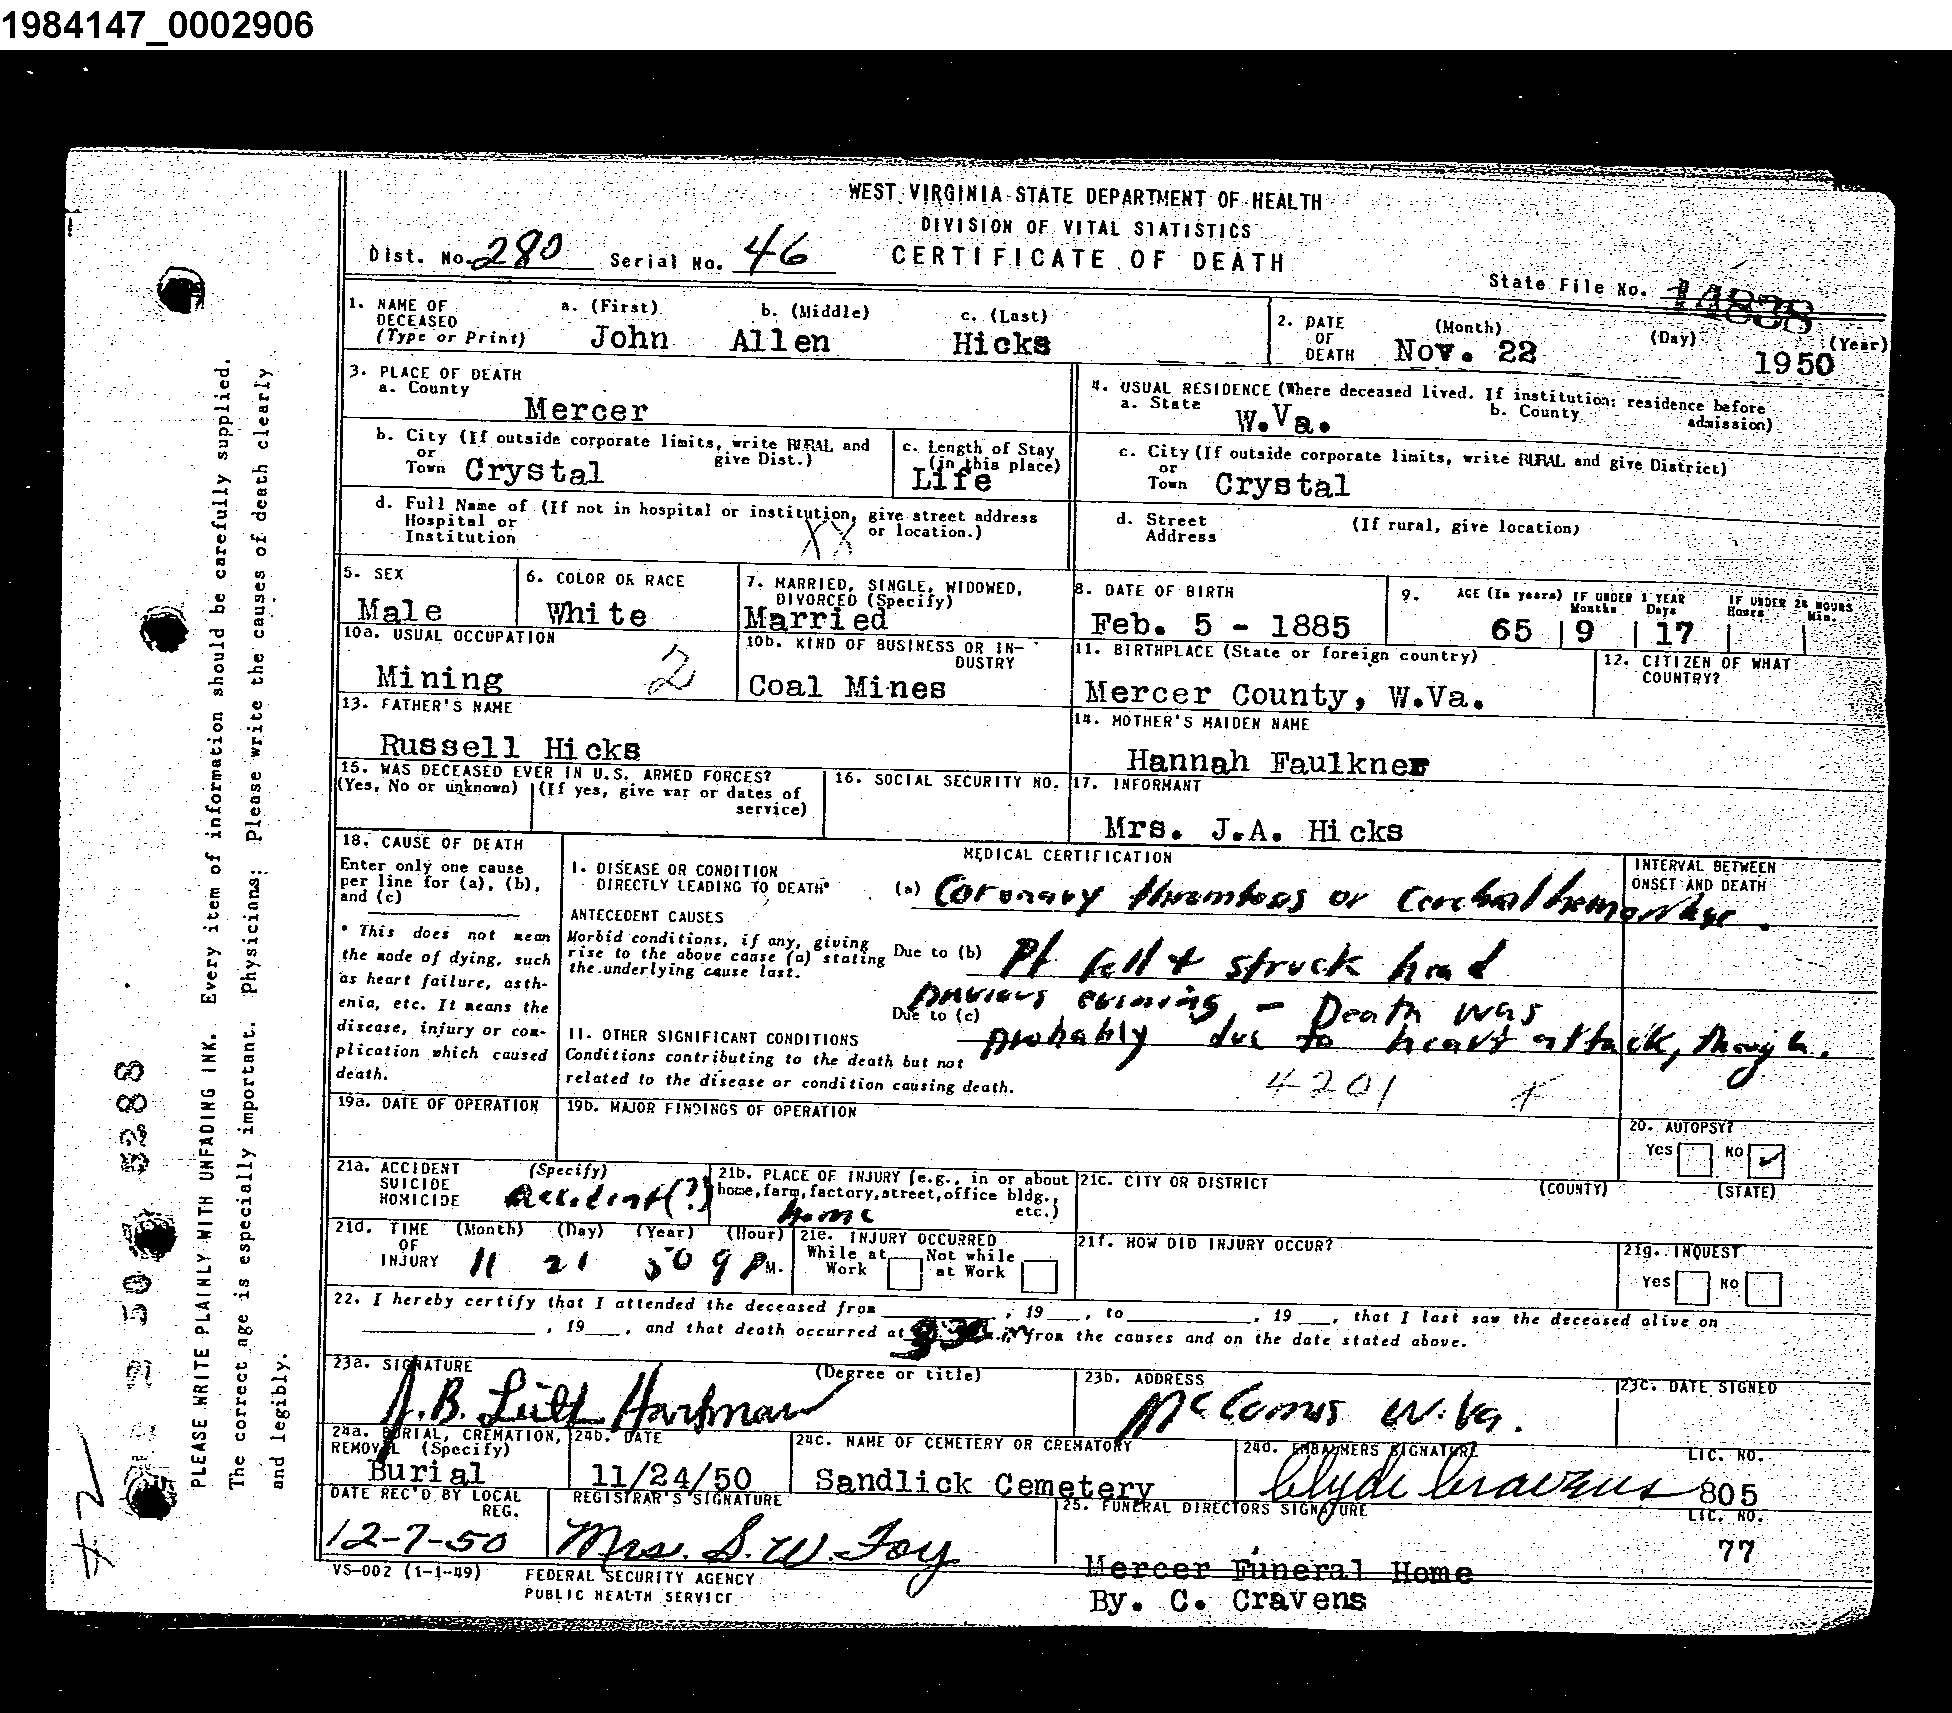 1984147_0002906
WEST VIRGINIA STATE DEPARTMENT OF HEALTH
DIVISION OF VITAL STATISTICS
CERTIFICATE OF DEATH
Dist. No. 280 Serial No. 46
State File No. 14838
1. NAME OF DECEASED (Type or Print) a. (First) John b. (Middle) Allen c. (Last) Hicks
2. DATE OF DEATH (Month) (Day) (Year) Nov. 22 1950
3. PLACE OF DEATH
a. County Mercer
b. City (If outside corporate limits, write RURAL and give Dist.) or Town Crystal
c. Length of Stay (in this place) Life
d. Full Name of (If not in hospital or institution, give street address or location.) Hospital or Institution XX
4. USUAL RESIDENCE (Where deceased lived. If institution: residence before admission)
a. State W.Va. b. County
c. City (If outside corporate limits, write RURAL and give District) or Town Crystal
d. Street Address (If rural, give location)
5. SEX Male
6. COLOR OR RACE White
7. MARRIED, SINGLE, WIDOWED, DIVORCED (Specify) Married
8. DATE OF BIRTH Feb. 5 - 1885
9. AGE (In years) 65 IF UNDER 1 YEAR Months 9 Days 17 IF UNDER 24 HOURS Hours Min.
10a. USUAL OCCUPATION Mining 2
10b. KIND OF BUSINESS OR INDUSTRY Coal Mines
11. BIRTHPLACE (State or foreign country) Mercer County, W.Va.
12. CITIZEN OF WHAT COUNTRY?
13. FATHER'S NAME Russell Hicks
14. MOTHER'S MAIDEN NAME Hannah Faulkner
15. WAS DECEASED EVER IN U.S. ARMED FORCES? (Yes, No or unknown) (If yes, give war or dates of service)
16. SOCIAL SECURITY NO.
17. INFORMANT Mrs. J.A. Hicks
18. CAUSE OF DEATH
Enter only one cause per line for (a), (b), and (c)
* This does not mean the mode of dying, such as heart failure, asthenia, etc. It means the disease, injury or complication which caused death.
MEDICAL CERTIFICATION
INTERVAL BETWEEN ONSET AND DEATH
I. DISEASE OR CONDITION DIRECTLY LEADING TO DEATH* (a) Coronary thrombosis or Cerebral hemorrhage.
ANTECEDENT CAUSES
Morbid conditions, if any, giving rise to the above cause (a) stating the underlying cause last.
Due to (b) Pt fell & struck head
previous evening - Death was
Due to (c) probably due to heart attack, though.
II. OTHER SIGNIFICANT CONDITIONS
Conditions contributing to the death but not related to the disease or condition causing death.
4201
19a. DATE OF OPERATION
19b. MAJOR FINDINGS OF OPERATION
20. AUTOPSY? Yes No ✓
21a. ACCIDENT SUICIDE HOMICIDE (Specify) Accident(?)
21b. PLACE OF INJURY (e.g., in or about home, farm, factory, street, office bldg., etc.) Home
21c. CITY OR DISTRICT (COUNTY) (STATE)
21d. TIME OF INJURY (Month) (Day) (Year) (Hour) 11 21 50 9 P M.
21e. INJURY OCCURRED While at Work Not while at Work
21f. HOW DID INJURY OCCUR?
21g. INQUEST Yes No
22. I hereby certify that I attended the deceased from , 19 , to , 19 , that I last saw the deceased alive on
, 19 , and that death occurred at m., from the causes and on the date stated above.
23a. SIGNATURE (Degree or title) Hartman
23b. ADDRESS McComas W.Va.
23c. DATE SIGNED
24a. BURIAL, CREMATION, REMOVAL (Specify) Burial
24b. DATE 11/24/50
24c. NAME OF CEMETERY OR CREMATORY Sandlick Cemetery
24d. EMBALMERS SIGNATURE Clyde Cravens LIC. NO. 805
DATE REC'D BY LOCAL REG. 12-7-50
REGISTRAR'S SIGNATURE Mrs. S. W. Foy
25. FUNERAL DIRECTORS SIGNATURE LIC. NO. 77
Mercer Funeral Home
By. C. Cravens
VS-002 (1-1-49)
FEDERAL SECURITY AGENCY
PUBLIC HEALTH SERVICE
PLEASE WRITE PLAINLY WITH UNFADING INK. Every item of information should be carefully supplied.
The correct age is especially important. Physicians: Please write the causes of death clearly
and legibly.